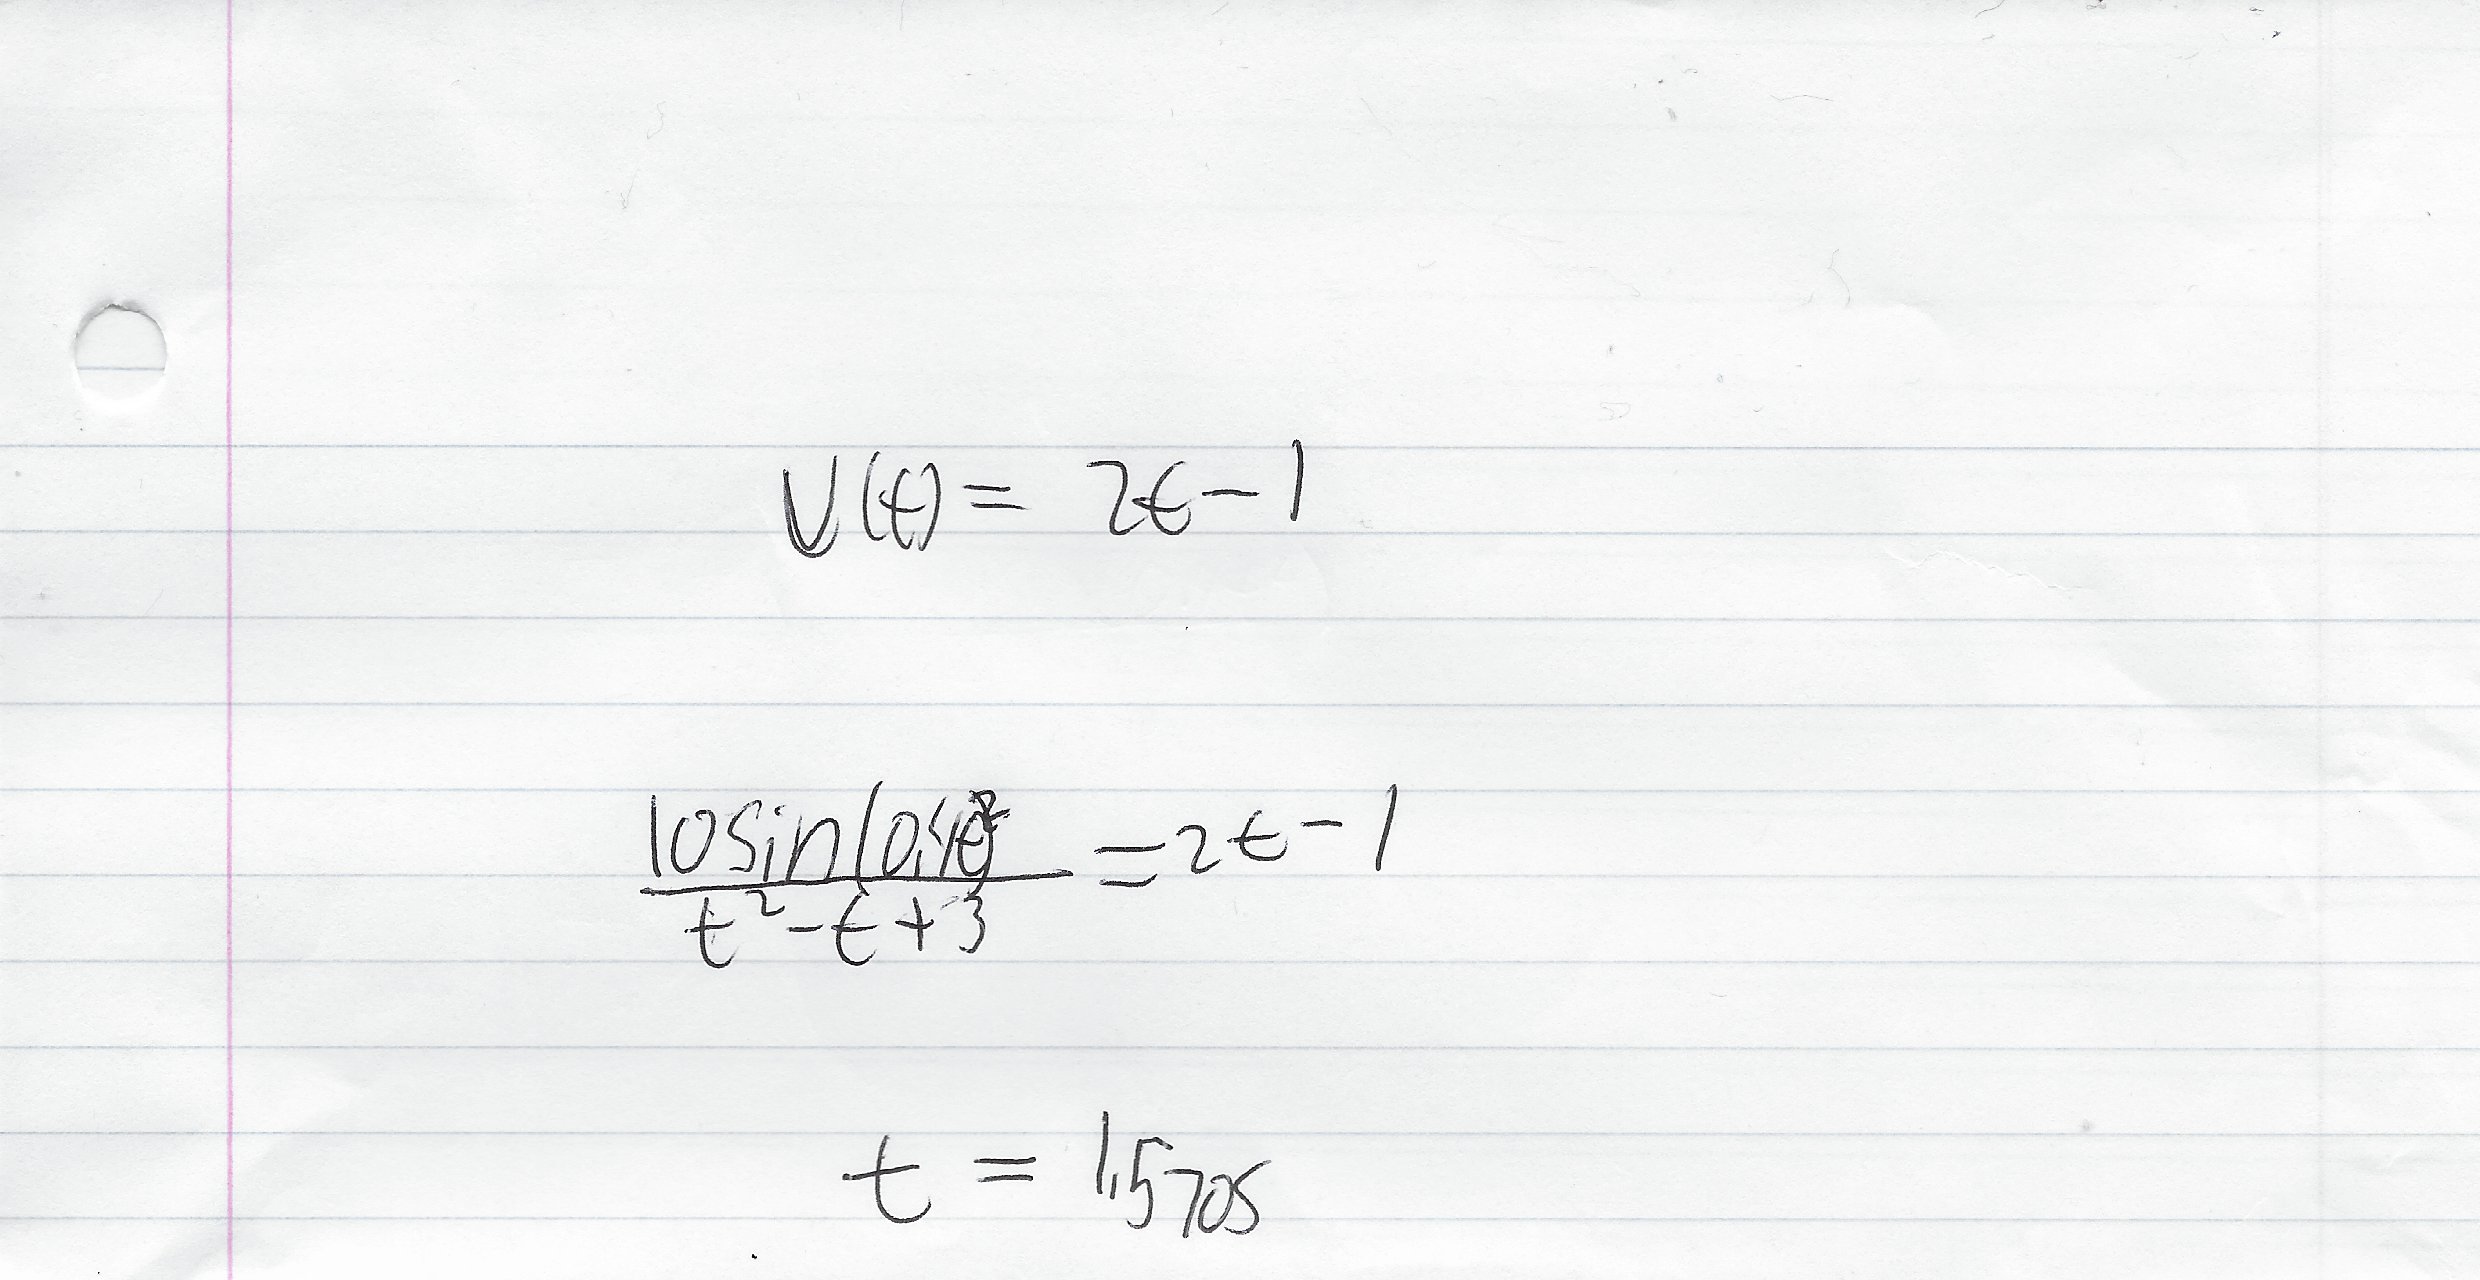 v(t) = 2t - 1
10sin(0.4t²
t² - t + 3 = 2t - 1
t = 1.5705